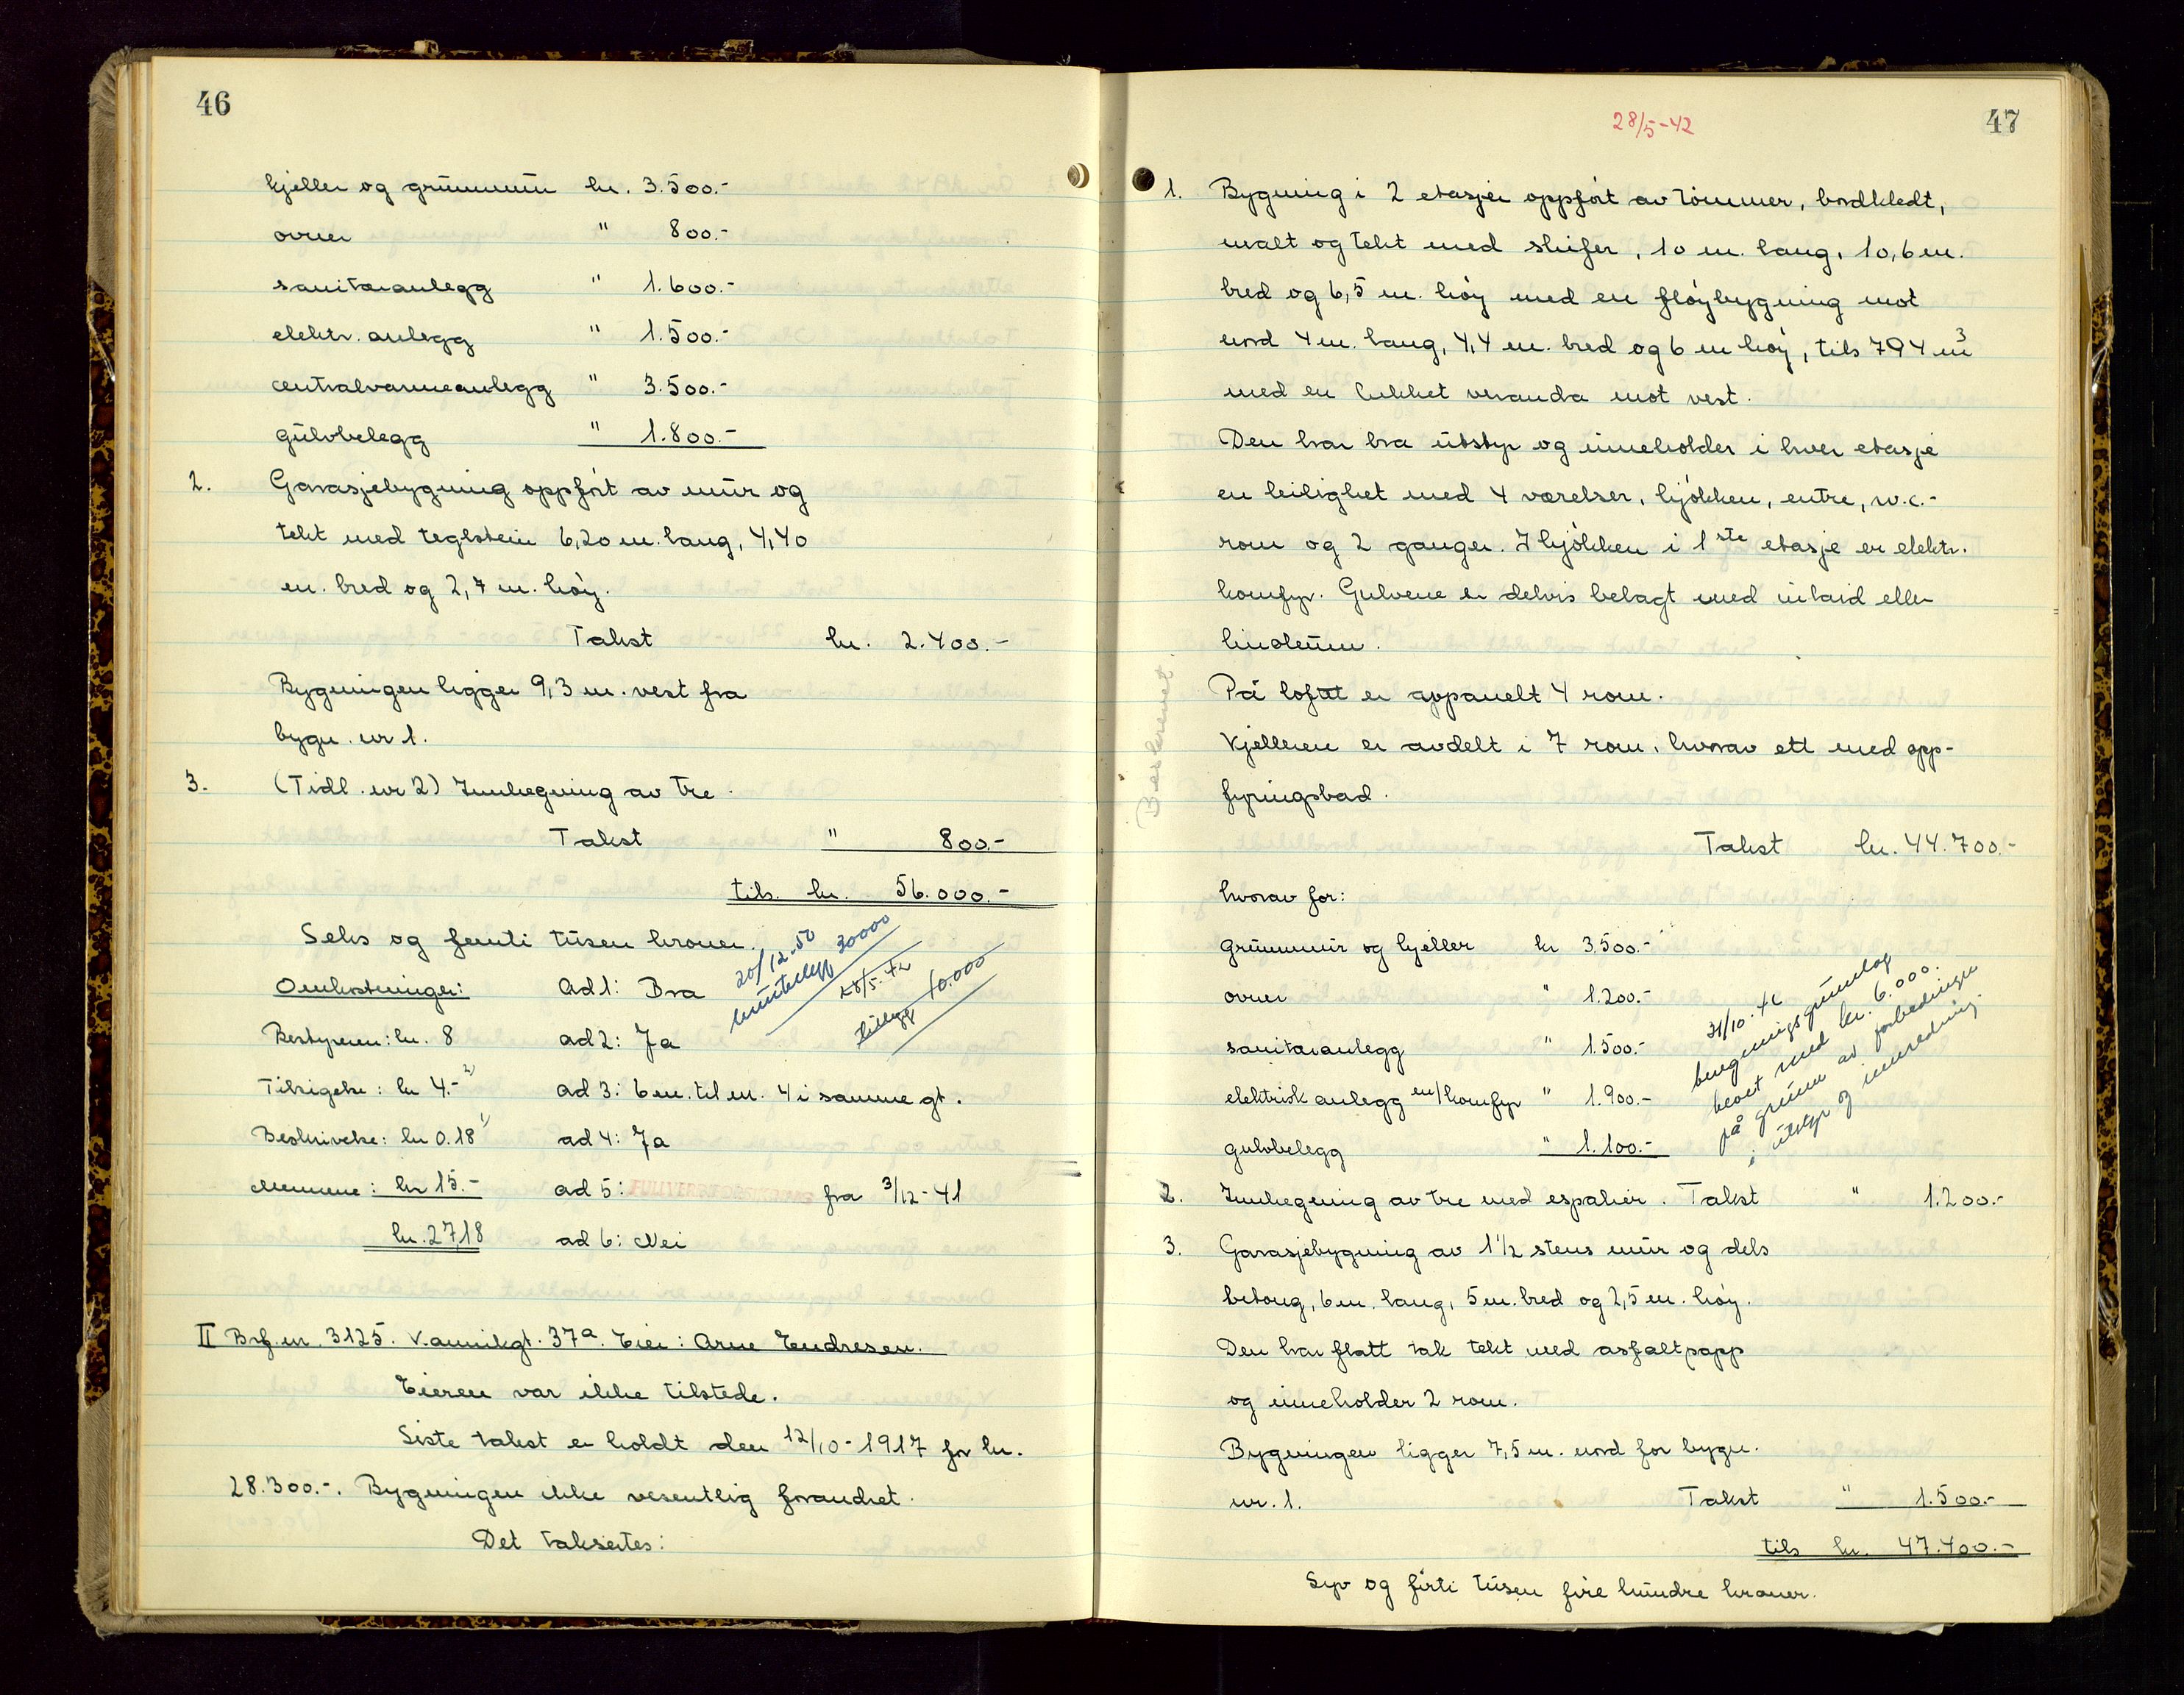 46
kjeller og grunnmur kr. 3.500.-
ovner " 800.-
sanitæranlegg " 1.600.-
elektr. anlegg " 1.500.-
centralvarmeanlegg " 3.500.-
gulvbelegg " 1.800.-
2. Garasjebygning oppført av mur og
tekt med teglstein 6,20 m. lang, 4,40
m. bred og 2,7 m. høy.
Takst kr. 2.400.-
Bygningen ligger 9,3 m. vest fra
bygn. nr 1.
3. (Tidl. nr 2) Innhegning av tre.
Takst " 800.-
tils. kr. 56.000.-
Seks og femti tusen kroner.
20/12-50
30000
28/5-42
tillegg 10.000
Omkostninger: ad 1: Bra
Bestyreren: kr. 8 ad 2: Ja
Tilsigelse: kr 4.- 2) ad 3: 6 m. til nr. 4 i samme gt.
Beskrivelse: kr 0.18 1) ad 4: Ja
Mennene: kr 15.- ad 5: FULLVERDIFORSIKRING fra 3/12-41
kr. 27,18 ad 6: Nei
II Brf. nr. 3125. Kannikgt. 37a. Eier: Arne Endresen.
Eieren var ikke tilstede.
Siste takst er holdt den 12/10-1917 for kr.
28.300.-. Bygningen ikke vesentlig forandret.
Det takseres:
47
28/5-42
1. Bygning i 2 etasjer oppført av tømmer, bordkledt,
malt og tekt med skifer, 10 m. lang, 10,6 m.
bred og 6,5 m. høy med en fløybygning mot
nord 4 m. lang, 4,4 m. bred og 6 m høy, tils 794 m3
med en lukket veranda mot vest.
Den har bra utstyr og inneholder i hver etasje
en leilighet med 4 værelser, kjøkken, entre, w.c.-
rom og 2 ganger. I kjøkken i 1ste etasje er elektr.
komfyr. Gulvene er delvis belagt med inlaid eller
linoleum.
På loftet er oppanelt 4 rom.
Kjelleren er avdelt i 7 rom, hvorav ett med opp-
fyringsbad.
Beskrevet.
Takst kr. 44.700.-
hvorav for:
grunnmur og kjeller kr 3.500.-
ovner " 1.200.-
sanitæranlegg " 1.500.-
elektrisk anlegg m/komfyr " 1.900.-
gulvbelegg " 1.100.-
31/10.46
bygningsgrunnlag
hevet med kr. 6.000.
på grunn av forbedringer
i utstyr og innredning.
2. Innhegning av tre med espalier. Takst " 1.200.-
3. Garasjebygning av 1 1/2 stens mur og dels
betong, 6 m. lang, 5 m. bred og 2,5 m. høy.
Den har flatt tak tekt med asfaltpapp
og inneholder 2 rom.
Bygningen ligger 7,5 m. nord for bygn.
nr. 1. Takst " 1.500.-
tils kr. 47.400.-
Syv og førti tusen fire hundre kroner.